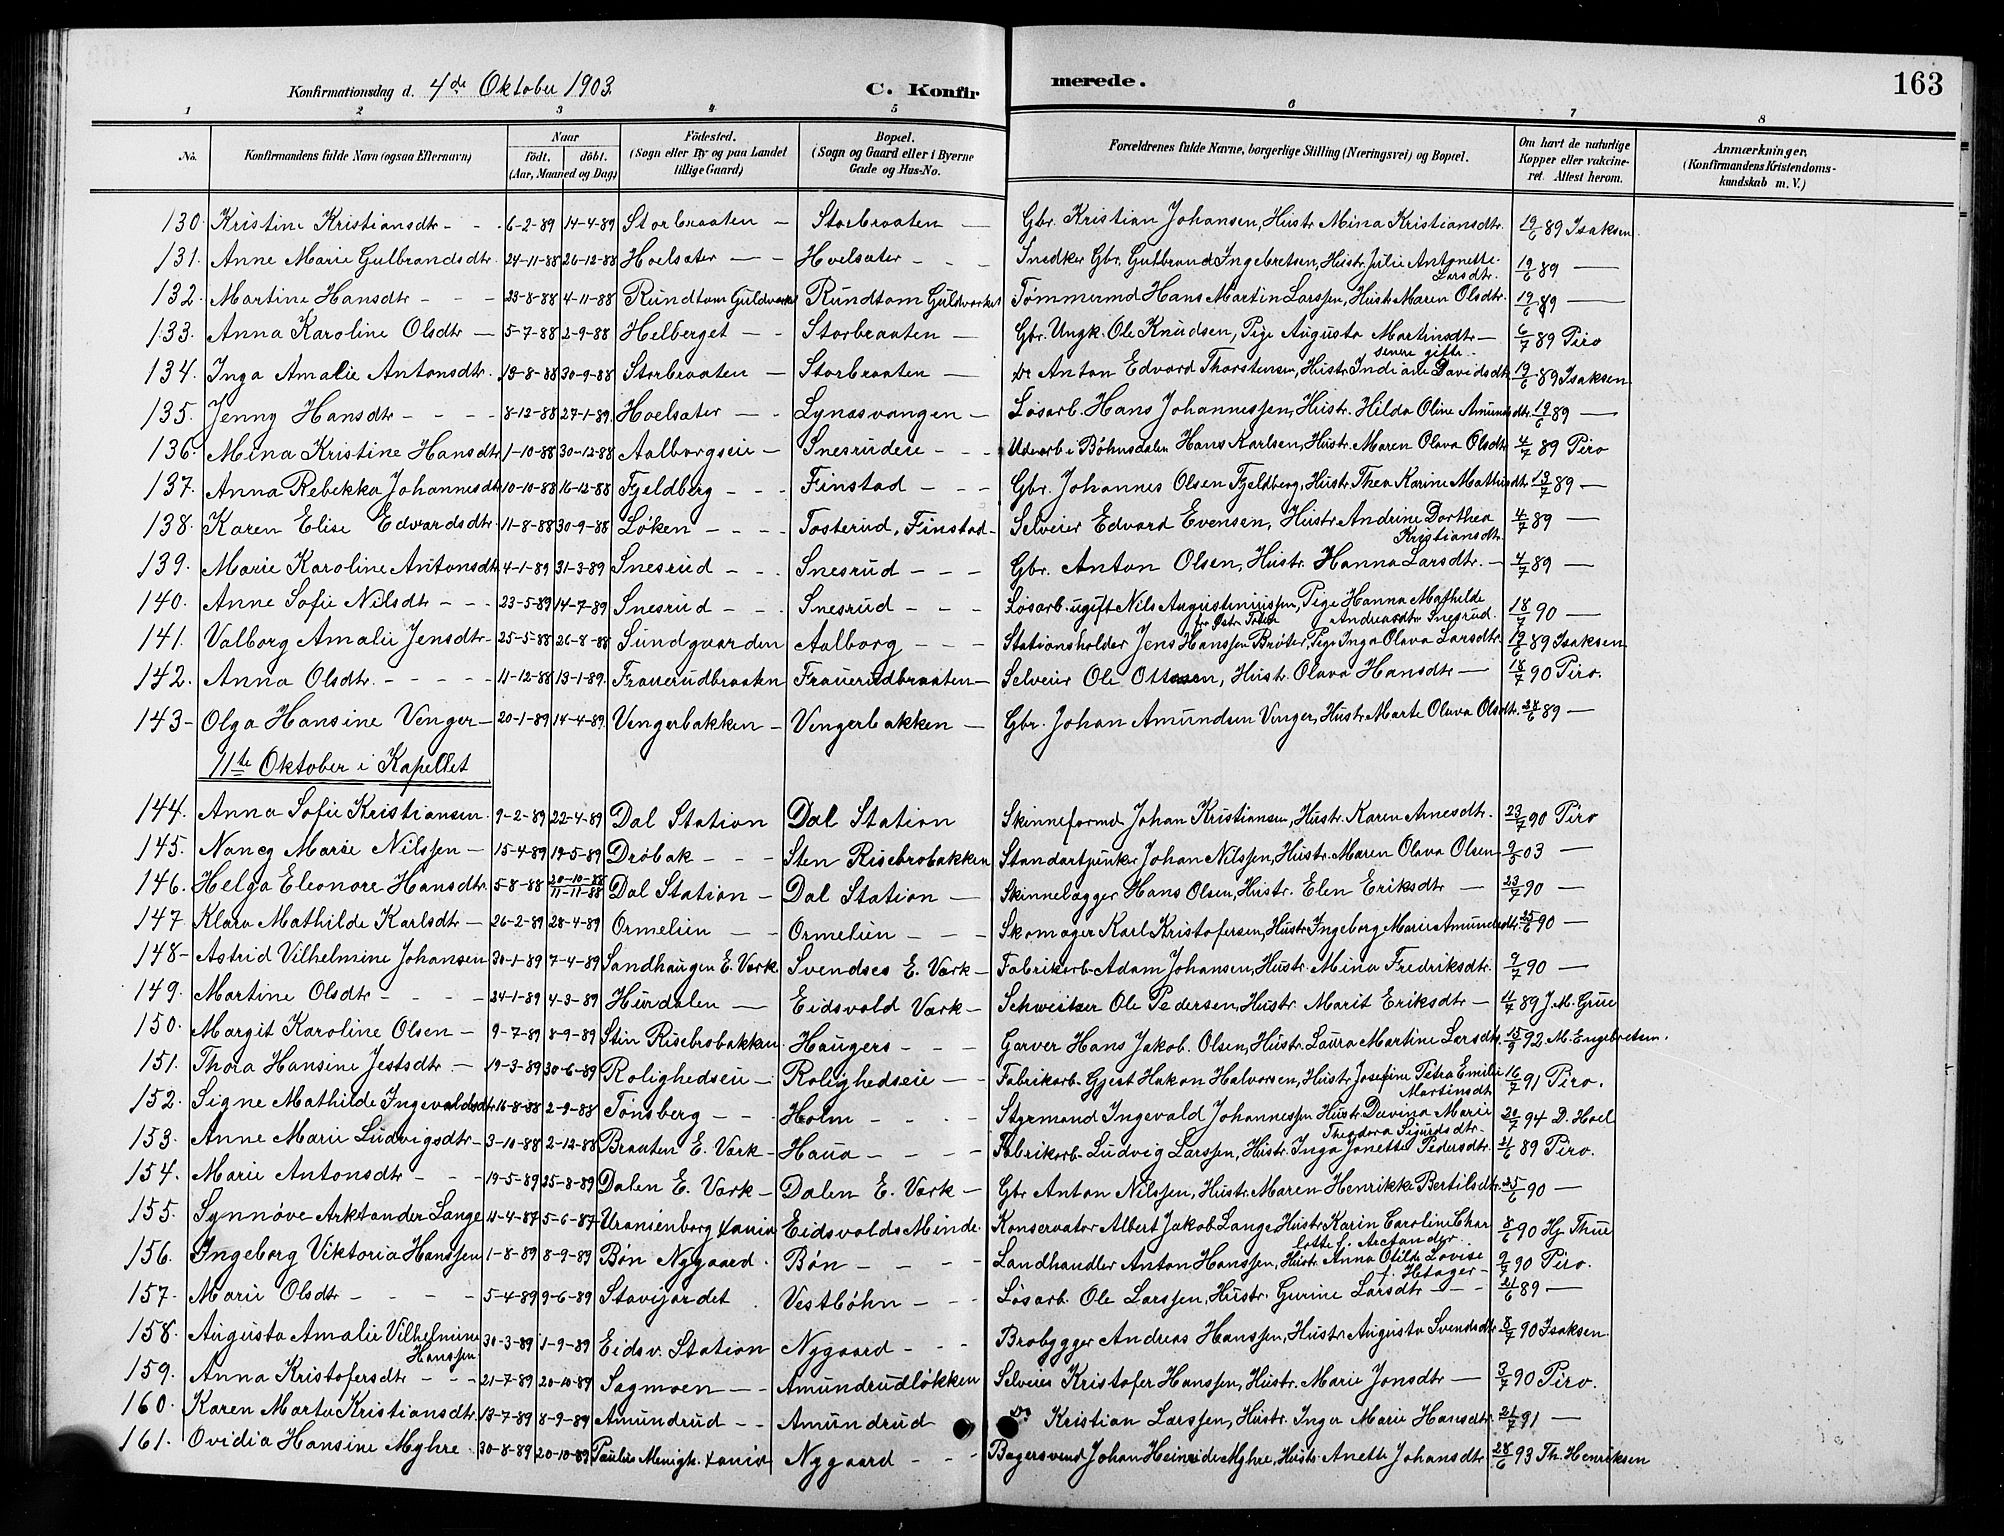 Konfirmationsdag d. 4de Oktober 1903. C. Konfirmerede. 163
1 2 3 4 5 6 7 8
No. Konfirmandens fulde Navn (ogsaa Efternavn) Naar födt. döbt. (Aar, Maaned og Dag) Födested. (Sogn eller By og paa Landet tillige Gaard) Bopæl. (Sogn og Gaard eller i Byerne Gade og Hus-No. Forældrenes fulde Navne, borgerlige Stilling (Næringsvei) og Bopæl. Om havt de naturlige Kopper eller vakcineret. Attest herom. Anmærkninger. (Konfirmandens Kristendomskundskab m. V.)
130 Kristine Kristiansdtr - - 6-2-89 14-4-89 Storbraaten - Storbraaten - Gbr. Kristian Johansen, Hustr. Mina Kristiansdtr. 19/6 89 Isaksen
131. Anne Marie Gulbrandsdtr. 24-11-88 26-12-88 Hoelsæter - Hoelsæter - - Snedker Gbr. Gulbrand Ingebretsen, Hustr. Julie Antonette Larsdtr. 19/6 89 -
132. Martine Hansdtr - - - 23-8-88 4-11-88 Rundtom Guldværket Rundtom Guldværket Tømmermd Hans Martin Larssen, Hustr. Maren Olsdtr. 19/6 89 -
133. Anna Karoline Olsdtr - 5-7-88 2-9-88 Helberget - - Storbraaten - Gbr. Ungk. Ole Knudsen, Pige Augusta Martinsdtr - senere gifte. 6/7 89 Piro
134. Inga Amalie Antonsdtr. 19-8-88 30-9-88 Storbraaten - Storbraaten - Do Anton Edvard Thorstensen, Hustr. Indiane Davidsdtr 19/6 89 Isaksen
135. Jenny Hansdtr - - - - 8-12-88 27-1-89 Hoelsæter - - Lynæsvangen - Løsarb. Hans Johannessen, Hustr. Hilda Oline Amundsdtr. 19/6 89 -
136. Mina Kristine Hansdtr 1-10-88 30-12-88 Aalborgseie - Snesrudeie - - - Udearb i Bøhnsdalen Hans Karlsen, Hustr. Maren Olava Olsdtr 4/7 89 Piro
137. Anna Rebekka Johannesdtr 10-10-88 16-12-88 Fjeldberg - - - Finstad - - - Gbr. Johannes Olsen Fjeldberg, Hustr. Thea Karine Mathisdtr. 13/7 89 -
138. Karen Elise Edvardsdtr 11-8-88 30-9-88 Løken - - - Tosterud, Finstad - Selveier Edvard Evensen, Hustr. Andrine Dorthea Kristiansdtr. 4/7 89 -
139. Marie Karoline Antonsdtr 4-1-89 31-3-89 Snesrud - - Snesrud - - - Gbr. Anton Olsen, Hustr. Hanna Larsdtr. - 4/7 89 -
140. Anne Sofie Nilsdtr - - - 23-5-89 14-7-89 Snesrud - - Snesrud - - - Løsarb. ugift Nils Augustenuussen, Pige Hanna Mathilde Andreasdtr Snesrud. 18/7 90 -
141. Valborg Amalie Jensdtr - 25-5-88 26-8-88 Sundgaarden Aalborg - - - Stationsholder Jens Hanssen Brøter, Pige Inga Olava Larsdtr. 19/6 89 Isaksen
142. Anna Olsdtr. - - - - - 11-12-88 13-1-89. Frauerudbraaten Frauerudbraaten - Selveier Ole Ottesen, Hustr. Olava Hansdtr - 18/7 90 Piro.
143 - Olga Hansine Venger - 20-1-89 14-4-89. Vengerbakken - Vengerbakken - Gbr. Johan Amundsen Venger, Hustr. Marte Olava Olsdtr. 28/6 89 -
11te Oktober i Kapellet
144. Anna Sofie Kristiansen. 9-2-89 22-4-89 Dal Station Dal Station Skinneformd Johan Kristiansen, Hustr. Karen Arnesdtr. 23/7 90 Piro
145. Nancy Marie Nilssen - 15-4-89 19-5-89 Drøbak - - - Sten Risebrobakken Standartjunker Johan Nilssen, Hustr. Maren Olava Olsen 9/5 03 -
146. Helga Eleonore Hansdtr. 5-8-88 20-10-88 11-11-88 Dal Station - Dal Station - Skinnelægger Hans Olsen, Hustr. Elen Eriksdtr - 23/7 90 -
147 Klara Mathilde Karlsdtr - 26-2-89 28-4-89 Ormelien - - Ormelien - - - Skomager Karl Kristofersen, Hustr Ingeborg Marie Amundsdtr. 25/6 90 -
148 - Astrid Vilhelmine Johansen 30-1-89 7-4-89 Sandhaugen E. Værk Svendses E. Værk - Fabrikarb. Adam Johansen, Hustr. Mina Fredriksdtr. 9/7 90 -
149. Martine Olsdtr - - - - 24-1-89 4-3-89 Hurdalen - Eidsvold Værk - Schweitser Ole Pedersen, Hustr. Marit Eriksdtr - 11/7 89 J. M. Grue
150. Margit Karoline Olsen - 9-7-89 8-9-89 Sten Risebrobakken Haugers - - Garver Hans Jakob Olsen, Hustr. Laura Martine Larsdtr. 15/9 92 M. Engebretsen.
151. Thora Hansine Jestsdtr. - 19-3-89 30-6-89 Rolighedseie - Rolighedseie - - Fabrikarb. Gjest Hakon Halvorsen, Hustr. Josefine Petra Emilie Martinsdtr 16/7 91 Piro.
152. Signe Mathilde Ingevaldsdtr 16-8-88 2-9-88 Tønsberg - - Holm - - - Styrmand Ingevald Johannessen Hustr. Davina Marie Theodora Sigurdsdtr. 20/7 94 D. Hoel
153. Anne Marie Ludvigsdtr - 3-10-88 2-12-88 Braaten E. Værk - Haua - - - - Fabrikarb. Ludvig Larssen, Hustr. Inga Jonette Pedersdtr. 21/6 89 Piro.
154. Marie Antonsdtr - - - 19-5-89 25-8-89 Dalen E. Værk - Dalen E. Værk - Gbr Anton Nilssen, Hustr. Maren Henrikke Bertilsdtr. 25/6 90 -
155. Synnøve Arktander Lange 11-4-87 5-6-87 Uranienborg Xania Eidsvolds Minde. Konservator Albert Jakob Lange Hustr Karin Caroline Charlotte f. Arctander 8/6 90 Hj. Thue
156. Ingeborg Viktoria Hanssen 1-8-89 8-9-89 Bøn Nygaard. Bøn - - - - Landhandler Anton Hanssen, Hustr. Anna Otilde Lovise f. Hetager - 9/7 90 Piro.
157. Marie Olsdtr - - - - 5-4-89 9-6-89 Stavijordet . Vestbøhn - - Løsarb. Ole Larssen, Hustr. Gurine Larsdtr - - - 21/6 89 -
158. Augusta Amalie Vilhelmine Hanssen 30-3-89 1-9-89 Eidsv. Station Nygaard - - Brobygger Andreas Hanssen, Hustr. Augusta Svendsdtr 8/7 90 Isaksen
159. Anna Kristofersdtr - - - 21-7-89 20-10-89 Sagmoen - - Amundrudløkken Selveier Kristofer Hanssen, Hustr. Marie Jonsdtr - 3/7 90 Piro.
160. Karen Marta Kristiansdtr. 13-7-89 8-9-89 Amundrud - - Amundrud Do Kristian Larssen, Hustr. Inger Marie Hansdtr. 21/7 91 -
161. Ovidia Hansine Myhre. 30-8-89 20-10-89 Paulus Menigh. Xania Nygaard - - - Bagersvend Johan Heinrich Myhre, Hustr. Anette Johansdtr 28/6 93 Th. Henriksen